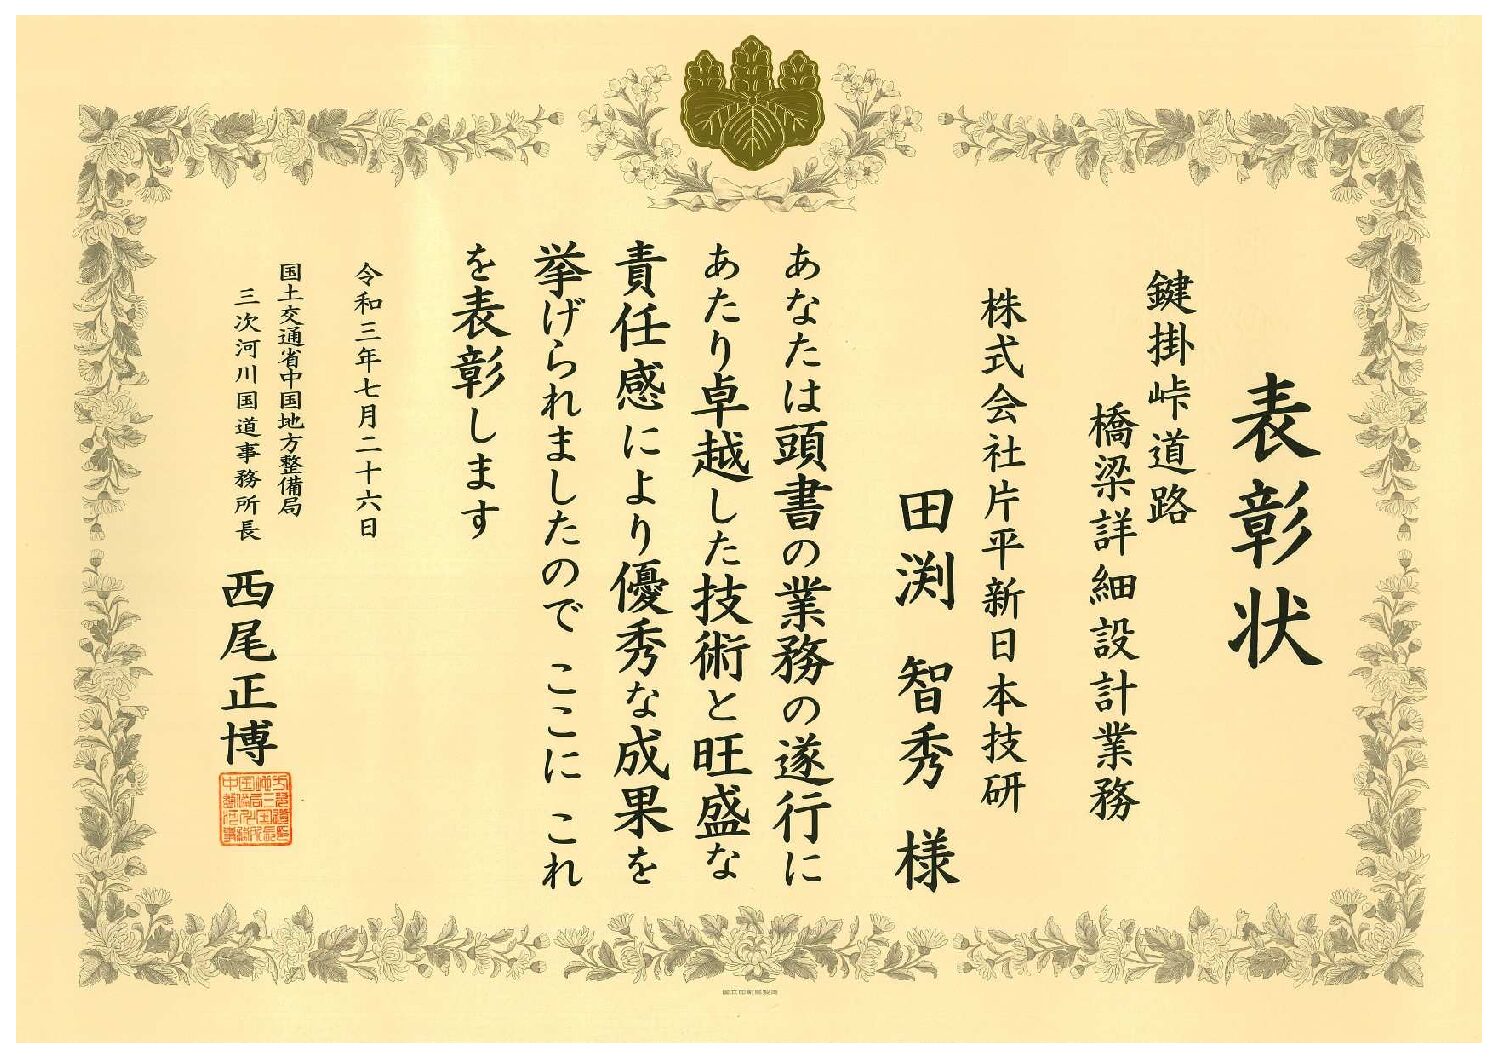 表彰状
鍵掛峠道路
橋梁詳細設計業務
株式会社片平新日本技研
田渕 智秀 様
あなたは頭書の業務の遂行に
あたり卓越した技術と旺盛な
責任感により優秀な成果を
挙げられましたので ここに これ
を表彰します
令和三年七月二十六日
国土交通省中国地方整備局
三次河川国道事務所長 西尾正博